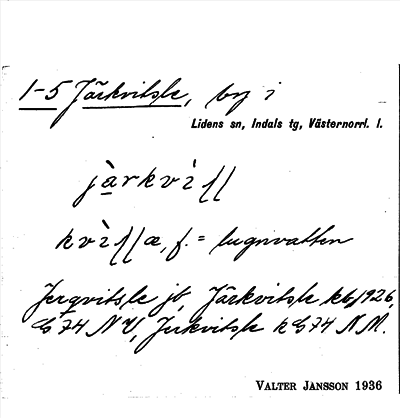 1-5 Järkvitsle, by i
Lidens sn, Indals tg, Västernorrl. l.
jàrkvìʃʃ
kvìʃʃæ, f. = lugnvatten
Jerqvitsle jb, Järkvitsle kb 1926,
G 74 NV, Jerkvitsle k G 74 NM.
VALTER JANSSON 1936